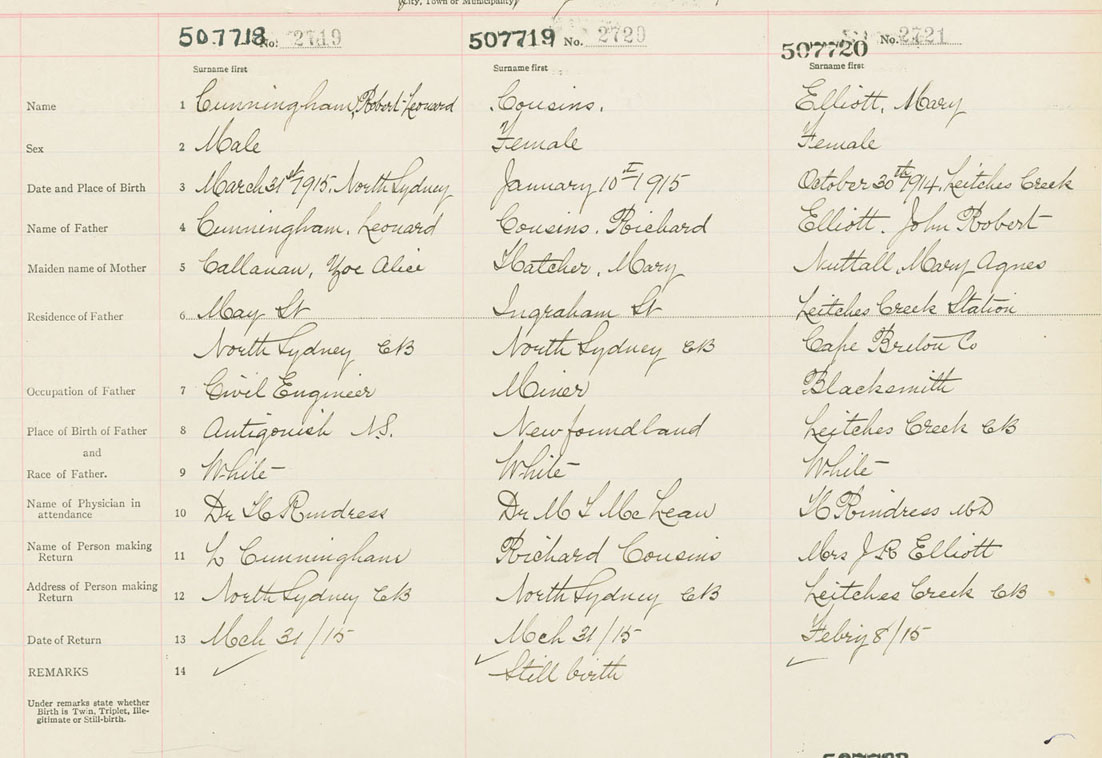 (City, Town or Municipality)
507718 No. 2719 507719 No. 2720 507720 No. 2721
Surname first Surname first Surname first
Name 1 Cunningham, Robert Leonard Cousins. Elliott, Mary
Sex 2 Male Female Female
Date and Place of Birth 3 March 31st 1915. North Sydney January 10 1915 October 30th 1914, Leitches Creek
Name of Father 4 Cunningham, Leonard Cousins. Richard Elliott. John Robert
Maiden name of Mother 5 Callanan, Zoe Alice Hatcher, Mary Nuttall, Mary Agnes
Residence of Father 6 May St Ingraham St Leitches Creek Station
North Sydney CB North Sydney CB Cape Breton Co
Occupation of Father 7 Civil Engineer Miner Blacksmith
Place of Birth of Father 8 Antigonish N.S. Newfoundland Leitches Creek CB
and
Race of Father. 9 White White White
Name of Physician in
attendance 10 Dr H Rindress Dr M T McLean H Rindress MD
Name of Person making
Return 11 L Cunningham Richard Cousins Mrs J R Elliott
Address of Person making
Return 12 North Sydney CB North Sydney CB Leitches Creek CB
Date of Return 13 Mch 31/15 Mch 31/15 Febry 8/15
REMARKS 14 Still birth
Under remarks state whether
Birth is Twin, Triplet, Ille-
gitimate or Still-birth.